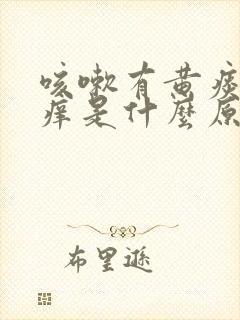 咳嗽有黄痰
痒是什麼原
布里遜